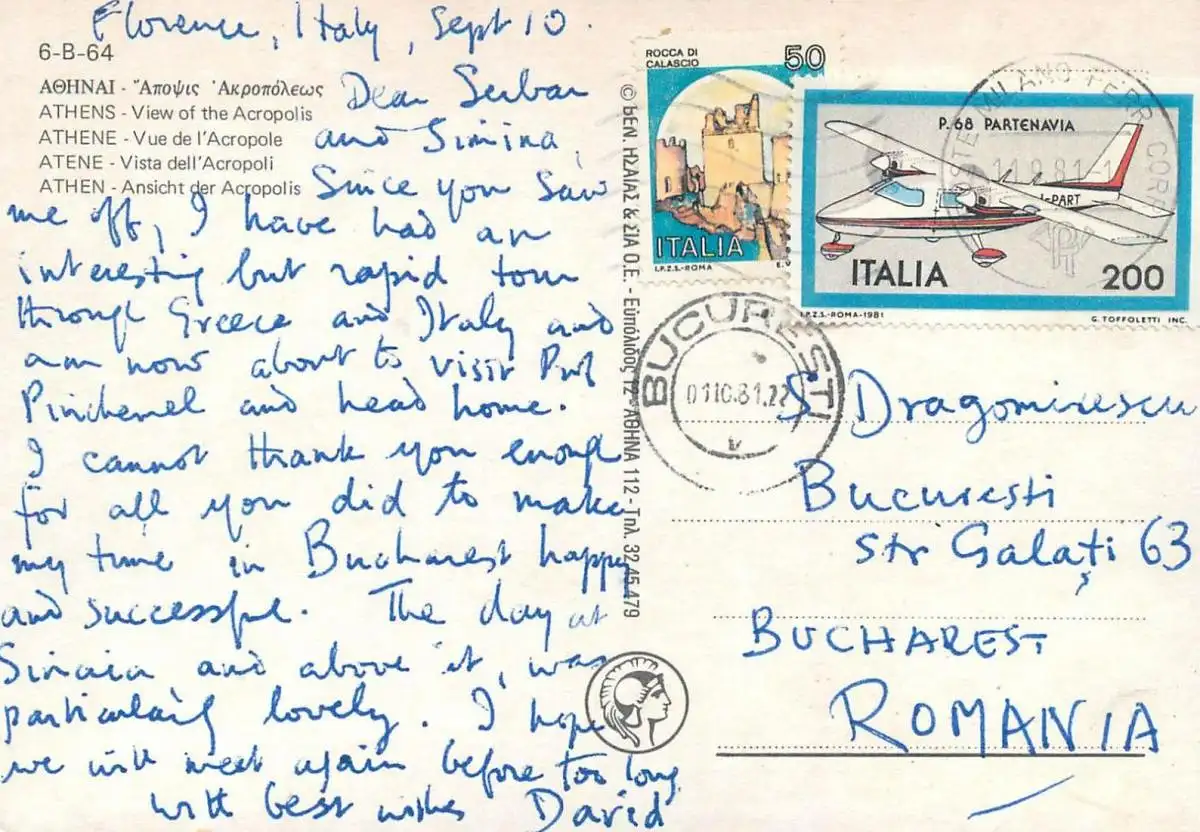 Florence, Italy, Sept 10.
6-B-64
ΑΘΗΝΑΙ - Ἄποψις Ἀκροπόλεως
ATHENS - View of the Acropolis
ATHENE - Vue de l'Acropole
ATENE - Vista dell'Acropoli
ATHEN - Ansicht der Acropolis
Dear Serban
and Simina,
Since you saw
me off, I have had an
interesting but rapid tour
through Greece and Italy and
am now about to visit Prof
Pinchemel and head home.
I cannot thank you enough
for all you did to make
my time in Bucharest happy
and successful. The day at
Sinaia and above it, was
particularly lovely. I hope
we will meet again before too long
with best wishes David
© ΒΕΝ. ΗΣΑΪΑΣ & ΣΙΑ Ο.Ε. - Εὐπόλιδος 12 - ΑΘΗΝΑ 112 - Τηλ. 32.45.479
ROCCA DI
CALASCIO
50
ITALIA
I.P.Z.S.-ROMA
P. 68 PARTENAVIA
I-PART
ITALIA
200
I.P.Z.S.-ROMA-1981
G. TOFFOLETTI INC.
MILANO FERR CORR
11.9.81
BUCUREȘTI
0110.81.22
V
S Dragomirescu
Bucuresti
str Galați 63
BUCHAREST
ROMANIA